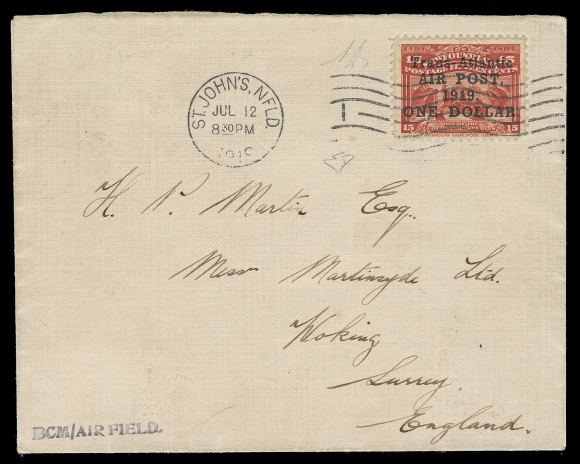 NEWFOUNDLAND
Trans-Atlantic
AIR POST,
1919.
ONE DOLLAR.
15 15
ST. JOHN'S, NFLD.
JUL 12
8 30 PM
1919
H. P. Martin Esq.
Mess Martinsyde Ltd.
Woking
Surrey.
England.
BCM/AIR FIELD.